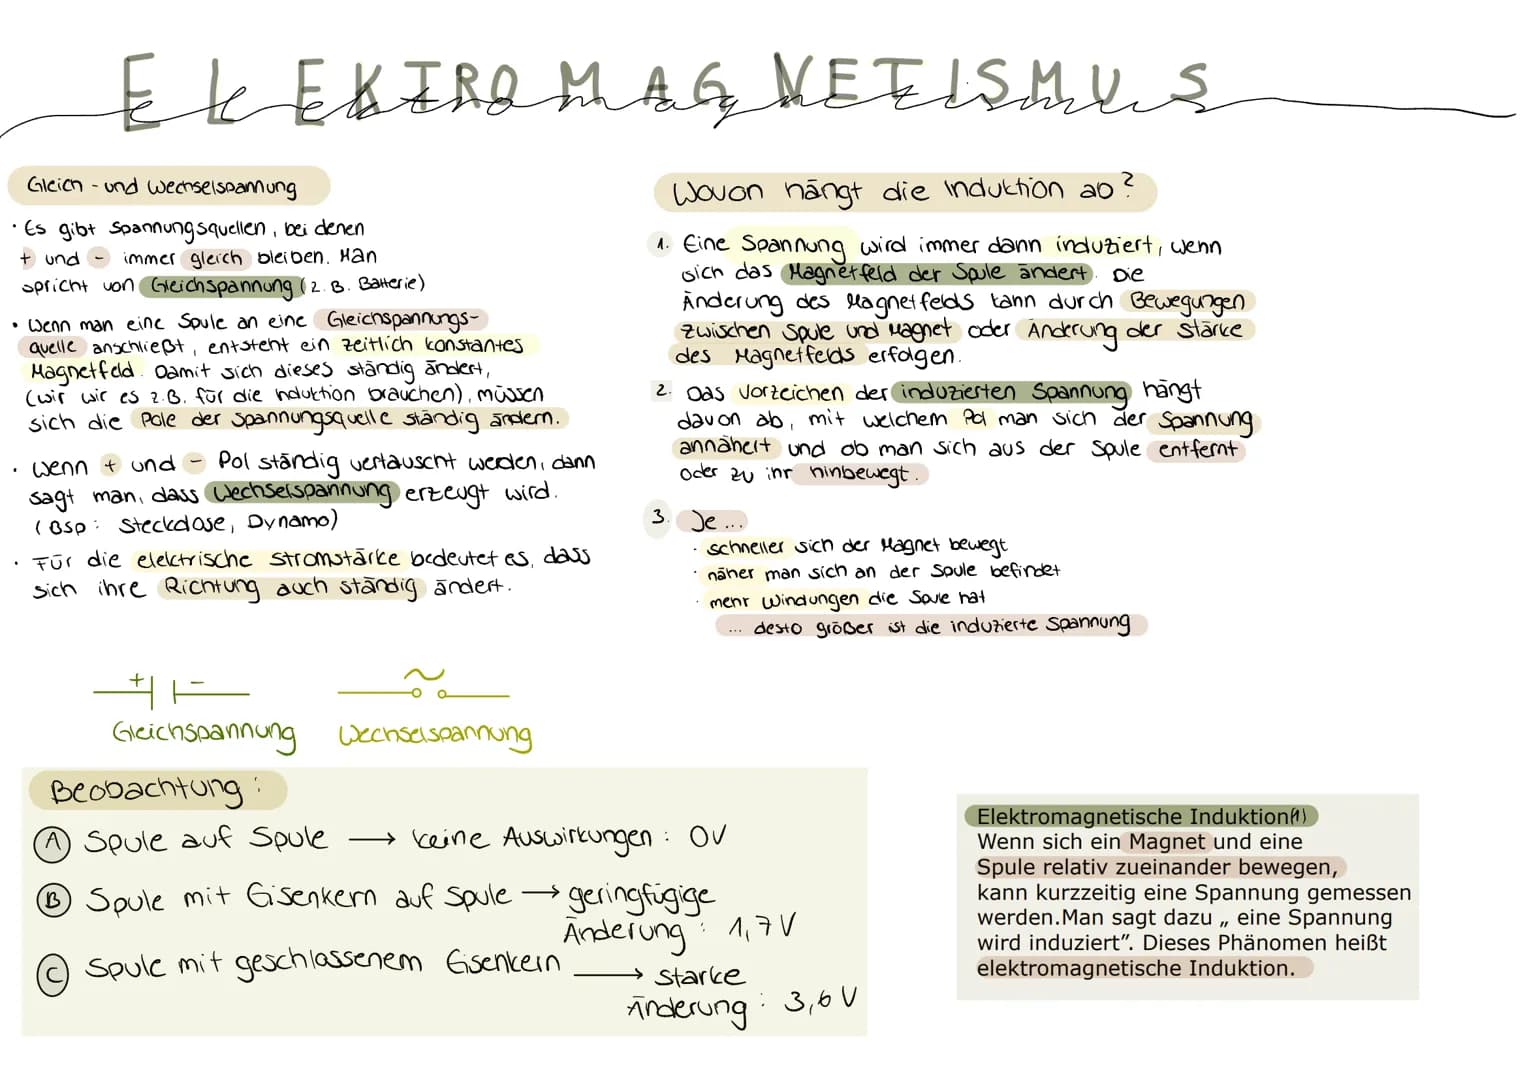 ELEKTROMAGNETISMUS
Elektromagnetismus
Gleich - und Wechselspannung
· Es gibt Spannungsquellen, bei denen
+ und - immer gleich bleiben. Man
spricht von Gleichspannung (z.B. Batterie)
• Wenn man eine Spule an eine Gleichspannungs-
quelle anschließt, entsteht ein zeitlich konstantes
Magnetfeld. Damit sich dieses ständig ändert,
(wir wir es z.B. für die Induktion brauchen), müssen
sich die Pole der Spannungsquelle ständig ändern.
· Wenn + und - Pol ständig vertauscht werden, dann
sagt man, dass Wechselspannung erzeugt wird.
(Bsp: Steckdose, Dynamo)
· Für die elektrische Stromstärke bedeutet es, dass
sich ihre Richtung auch ständig ändert.
+ -
~
Gleichspannung Wechselspannung
Wovon hängt die Induktion ab?
1. Eine Spannung wird immer dann induziert, wenn
sich das Magnetfeld der Spule ändert. Die
Änderung des Magnetfelds kann durch Bewegungen
zwischen Spule und Magnet oder Änderung der Stärke
des Magnetfelds erfolgen.
2. Das Vorzeichen der induzierten Spannung hängt
davon ab, mit welchem Pol man sich der Spannung
annähert und ob man sich aus der Spule entfernt
oder zu ihr hinbewegt.
3. Je ...
· schneller sich der Magnet bewegt
· näher man sich an der Spule befindet
· mehr Windungen die Spule hat
... desto größer ist die induzierte Spannung
Beobachtung:
A Spule auf Spule → keine Auswirkungen: 0V
B Spule mit Eisenkern auf Spule → geringfügige
Änderung: 1,7 V
C Spule mit geschlossenem Eisenkern → starke
Änderung: 3,6 V
Elektromagnetische Induktion(1)
Wenn sich ein Magnet und eine
Spule relativ zueinander bewegen,
kann kurzzeitig eine Spannung gemessen
werden.Man sagt dazu „ eine Spannung
wird induziert”. Dieses Phänomen heißt
elektromagnetische Induktion.